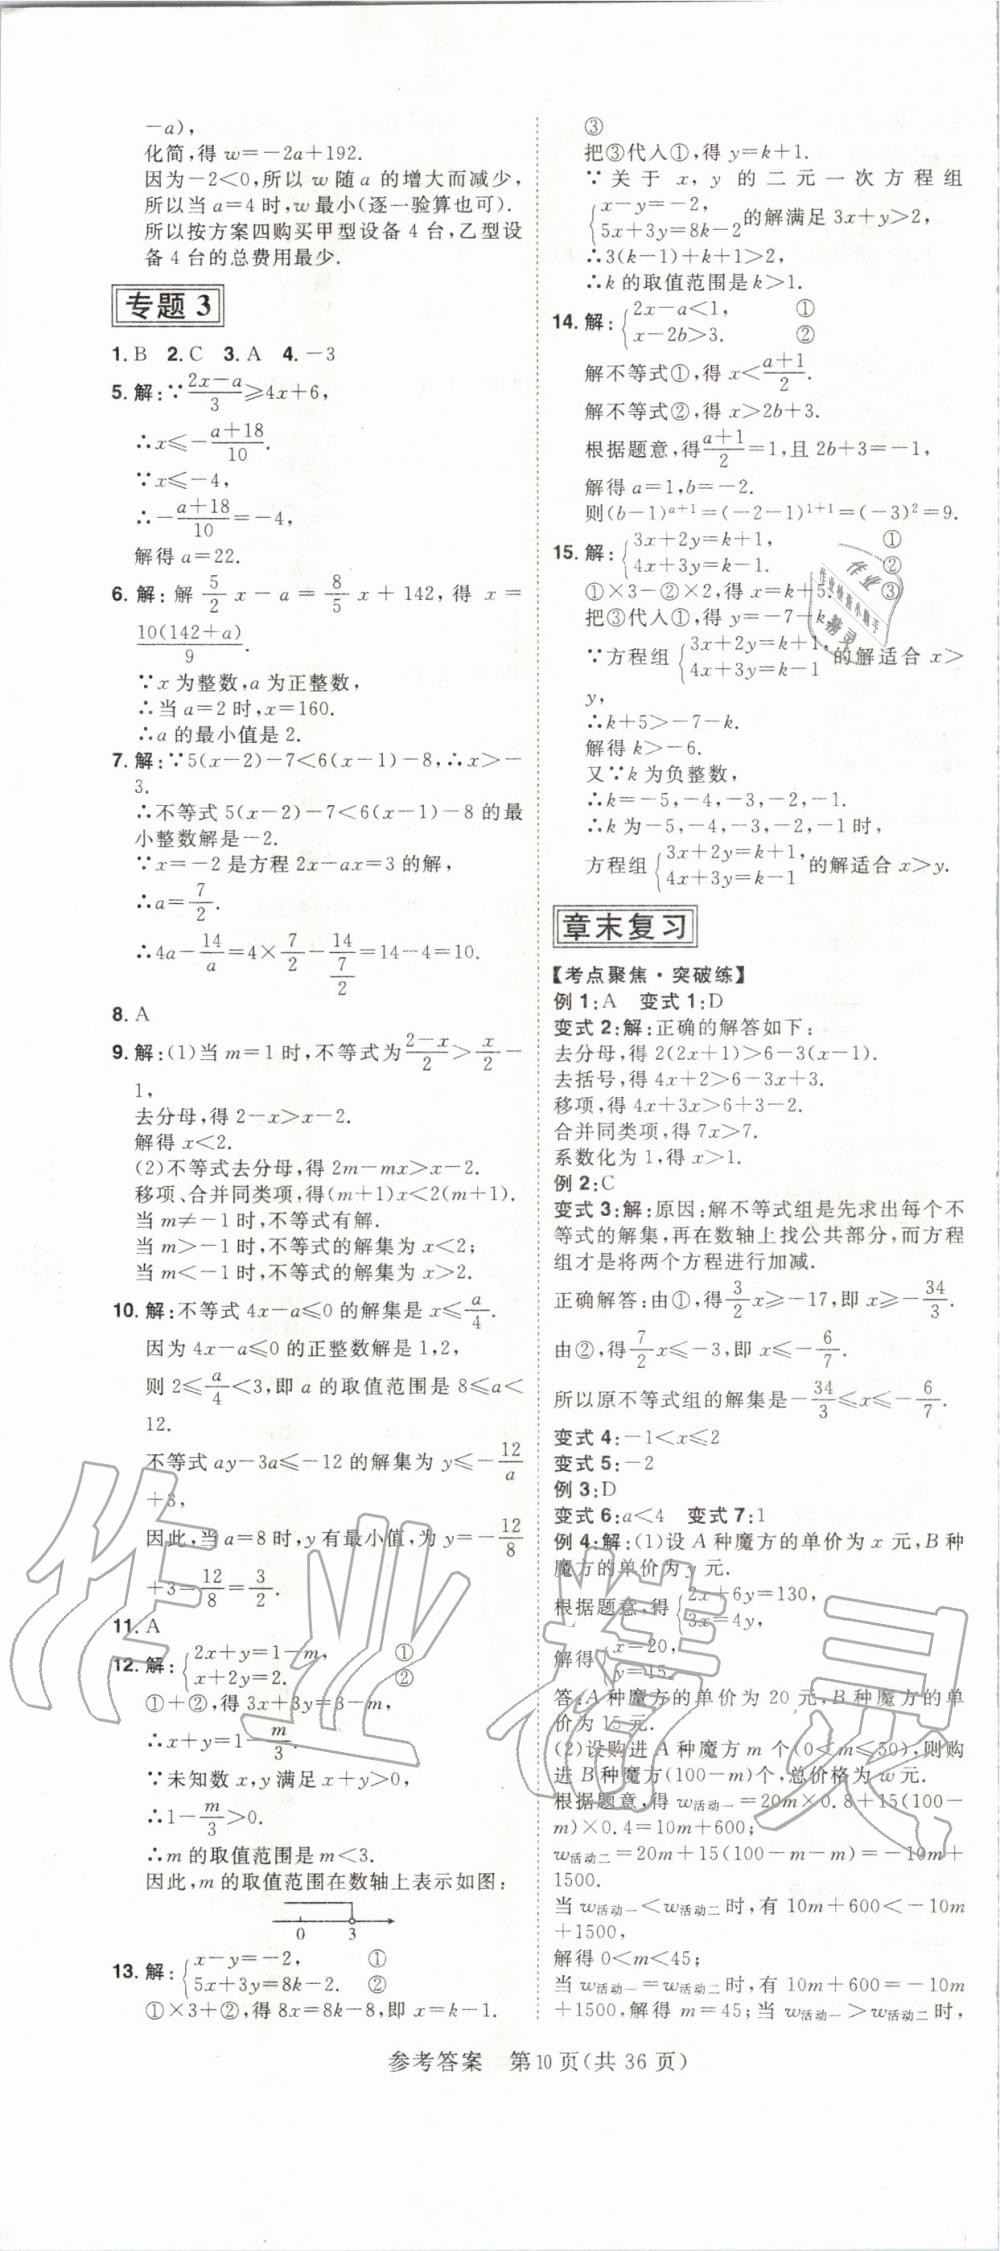 －a)，
化简，得 w＝－2a＋192．
因为－2＜0，所以 w 随 a 的增大而减少，
所以当 a＝4 时，w 最小(逐一验算也可)．
所以按方案四购买甲型设备 4 台，乙型设
备 4 台的总费用最少．
专题 3
1. B　2. C　3. A　4. －3
5. 解：∵(2x－a)/3≥4x＋6，
∴x≤－(a＋18)/10．
∵x≤－4，
∴－(a＋18)/10＝－4，
解得 a＝22．
6. 解：解 5/2 x－a＝8/5 x＋142，得 x＝
10(142＋a)/9．
∵x 为整数，a 为正整数，
∴当 a＝2 时，x＝160．
∴a 的最小值是 2．
7. 解：∵5(x－2)－7＜6(x－1)－8，∴x＞－
3．
∴不等式 5(x－2)－7＜6(x－1)－8 的最
小整数解是－2．
∵x＝－2 是方程 2x－ax＝3 的解，
∴a＝7/2．
∴4a－14/a＝4×7/2－14/(7/2)＝14－4＝10．
8. A
9. 解：(1)当 m＝1 时，不等式为(2－x)/2＞x/2－
1，
去分母，得 2－x＞x－2．
解得 x＜2．
(2)不等式去分母，得 2m－mx＞x－2．
移项、合并同类项，得(m＋1)x＜2(m＋1)．
当 m≠－1 时，不等式有解．
当 m＞－1 时，不等式的解集为 x＜2；
当 m＜－1 时，不等式的解集为 x＞2．
10. 解：不等式 4x－a≤0 的解集是 x≤a/4．
因为 4x－a≤0 的正整数解是 1，2，
则 2≤a/4＜3，即 a 的取值范围是 8≤a＜
12．
不等式 ay－3a≤－12 的解集为 y≤－12/a
＋3，
因此，当 a＝8 时，y 有最小值，为 y＝－12/8
＋3＝12/8＝3/2．
11. A
12. 解：{2x＋y＝1－m，　①
x＋2y＝2．　②
①＋②，得 3x＋3y＝3－m，
∴x＋y＝1－m/3．
∵未知数 x，y 满足 x＋y＞0，
∴1－m/3＞0．
∴m 的取值范围是 m＜3．
因此，m 的取值范围在数轴上表示如图：
0　3
13. 解：{x－y＝－2，　①
5x＋3y＝8k－2．　②
①×3＋②，得 8x＝8k－8，即 x＝k－1．
③
把③代入①，得 y＝k＋1．
∵关于 x，y 的二元一次方程组
{x－y＝－2，
5x＋3y＝8k－2 的解满足 3x＋y＞2，
∴3(k－1)＋k＋1＞2，
∴k 的取值范围是 k＞1．
14. 解：{2x－a＜1，　①
x－2b＞3．　②
解不等式①，得 x＜(a＋1)/2．
解不等式②，得 x＞2b＋3．
根据题意，得(a＋1)/2＝1，且 2b＋3＝－1，
解得 a＝1，b＝－2．
则(b－1)^(a＋1)＝(－2－1)^(1＋1)＝(－3)²＝9．
15. 解：{3x＋2y＝k＋1，　①
4x＋3y＝k－1．　②
①×3－②×2，得 x＝k＋5．　③
把③代入①，得 y＝－7－k．
∵方程组{3x＋2y＝k＋1，
4x＋3y＝k－1 的解适合 x＞
y，
∴k＋5＞－7－k．
解得 k＞－6．
又∵k 为负整数，
∴k＝－5，－4，－3，－2，－1．
∴k 为－5，－4，－3，－2，－1 时，
方程组{3x＋2y＝k＋1，
4x＋3y＝k－1 的解适合 x＞y．
章末复习
【考点聚焦·突破练】
例 1：A　变式 1：D
变式 2：解：正确的解答如下：
去分母，得 2(2x＋1)＞6－3(x－1)．
去括号，得 4x＋2＞6－3x＋3．
移项，得 4x＋3x＞6＋3－2．
合并同类项，得 7x＞7．
系数化为 1，得 x＞1．
例 2：C
变式 3：解：原因：解不等式组是先求出每个不
等式的解集，再在数轴上找公共部分，而方程
组才是将两个方程进行加减．
正确解答：由①，得 3/2 x≥－17，即 x≥－34/3．
由②，得 7/2 x≤－3，即 x≤－6/7．
所以原不等式组的解集是－34/3≤x≤－6/7．
变式 4：－1＜x≤2
变式 5：－2
例 3：D
变式 6：a＜4　变式 7：1
例 4：解：(1)设 A 种魔方的单价为 x 元，B 种
魔方的单价为 y 元．
根据题意，得{2x＋6y＝130，
3x＝4y，
解得{x＝20，
y＝15．
答：A 种魔方的单价为 20 元，B 种魔方的单
价为 15 元．
(2)设购进 A 种魔方 m 个(0＜m≤50)，则购
进 B 种魔方(100－m)个，总价格为 w 元．
根据题意，得 w活动一＝20m×0.8＋15(100－
m)×0.4＝10m＋600；
w活动二＝20m＋15(100－m－m)＝－10m＋
1500．
当 w活动一＜w活动二时，有 10m＋600＜－10m
＋1500，
解得 0＜m＜45；
当 w活动一＝w活动二时，有 10m＋600＝－10m
＋1500，解得 m＝45；当 w活动一＞w活动二时，
参考答案　第10页(共 36 页)
作业
作业检查小助手
精灵
作业精灵